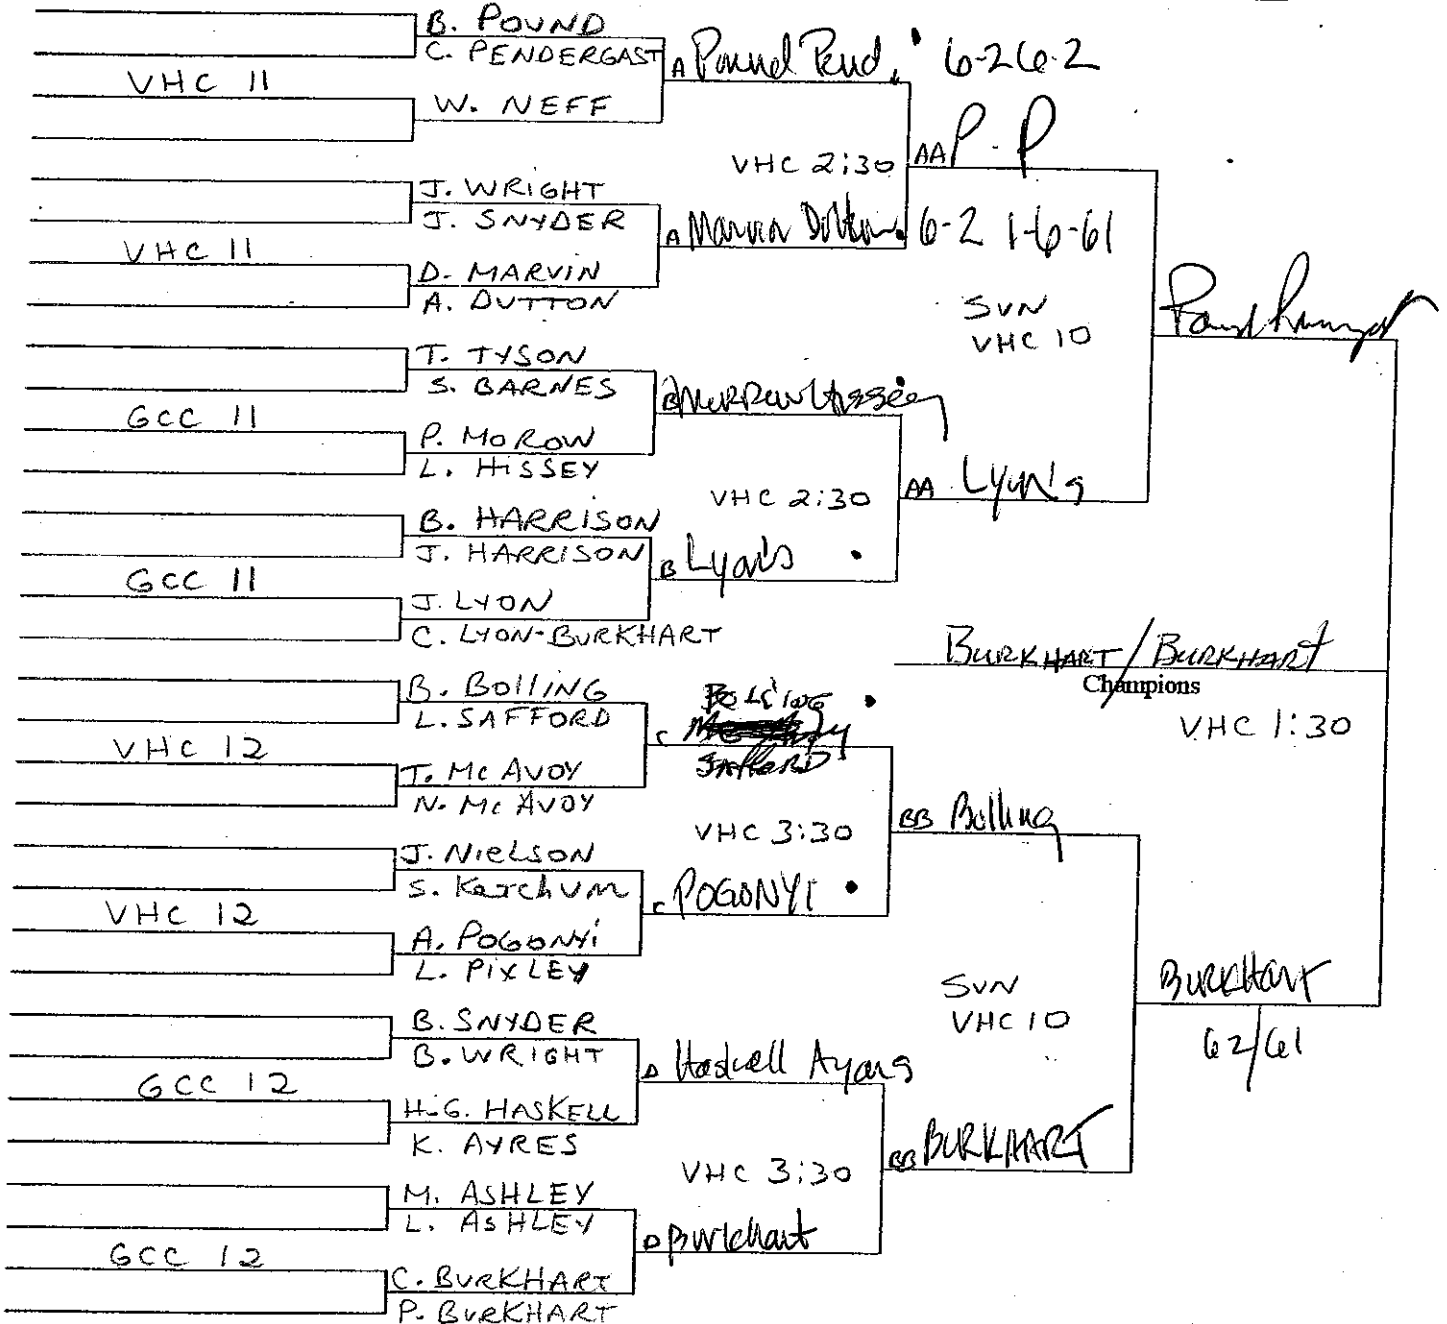 B. POUND
C. PENDERGAST
VHC 11
W. NEFF
A Pound Pend. 6-2 6-2
VHC 2:30
AA P-P
J. WRIGHT
J. SNYDER
VHC 11
D. MARVIN
A. DUTTON
A Marvin Dutton 6-2 1-6-61
SUN
VHC 10
T. TYSON
S. BARNES
GCC 11
P. MOROW
L. HISSEY
B Morrow Hissey
VHC 2:30
AA Lyon's
B. HARRISON
J. HARRISON
GCC 11
J. LYON
C. LYON-BURKHART
B Lyon's
BURKHART/BURKHART
Champions
VHC 1:30
B. BOllING
L. SAFFORD
VHC 12
T. Mc AVOY
N. Mc AVOY
C
BOLLING
SAFFORD
VHC 3:30
BB Bolling
J. NIELSON
S. KetchUm
VHC 12
A. POGONYi
L. PIXLEY
C POGONYI
SUN
VHC 10
BURKHART
62/61
B. SNYDER
B. WRIGHT
GCC 12
H.G. HASKELL
K. AYRES
D Haskell Ayars
VHC 3:30
BB BURKHART
M. ASHLEY
L. ASHLEY
GCC 12
C. BURKHART
P. BURKHART
D Burkhart